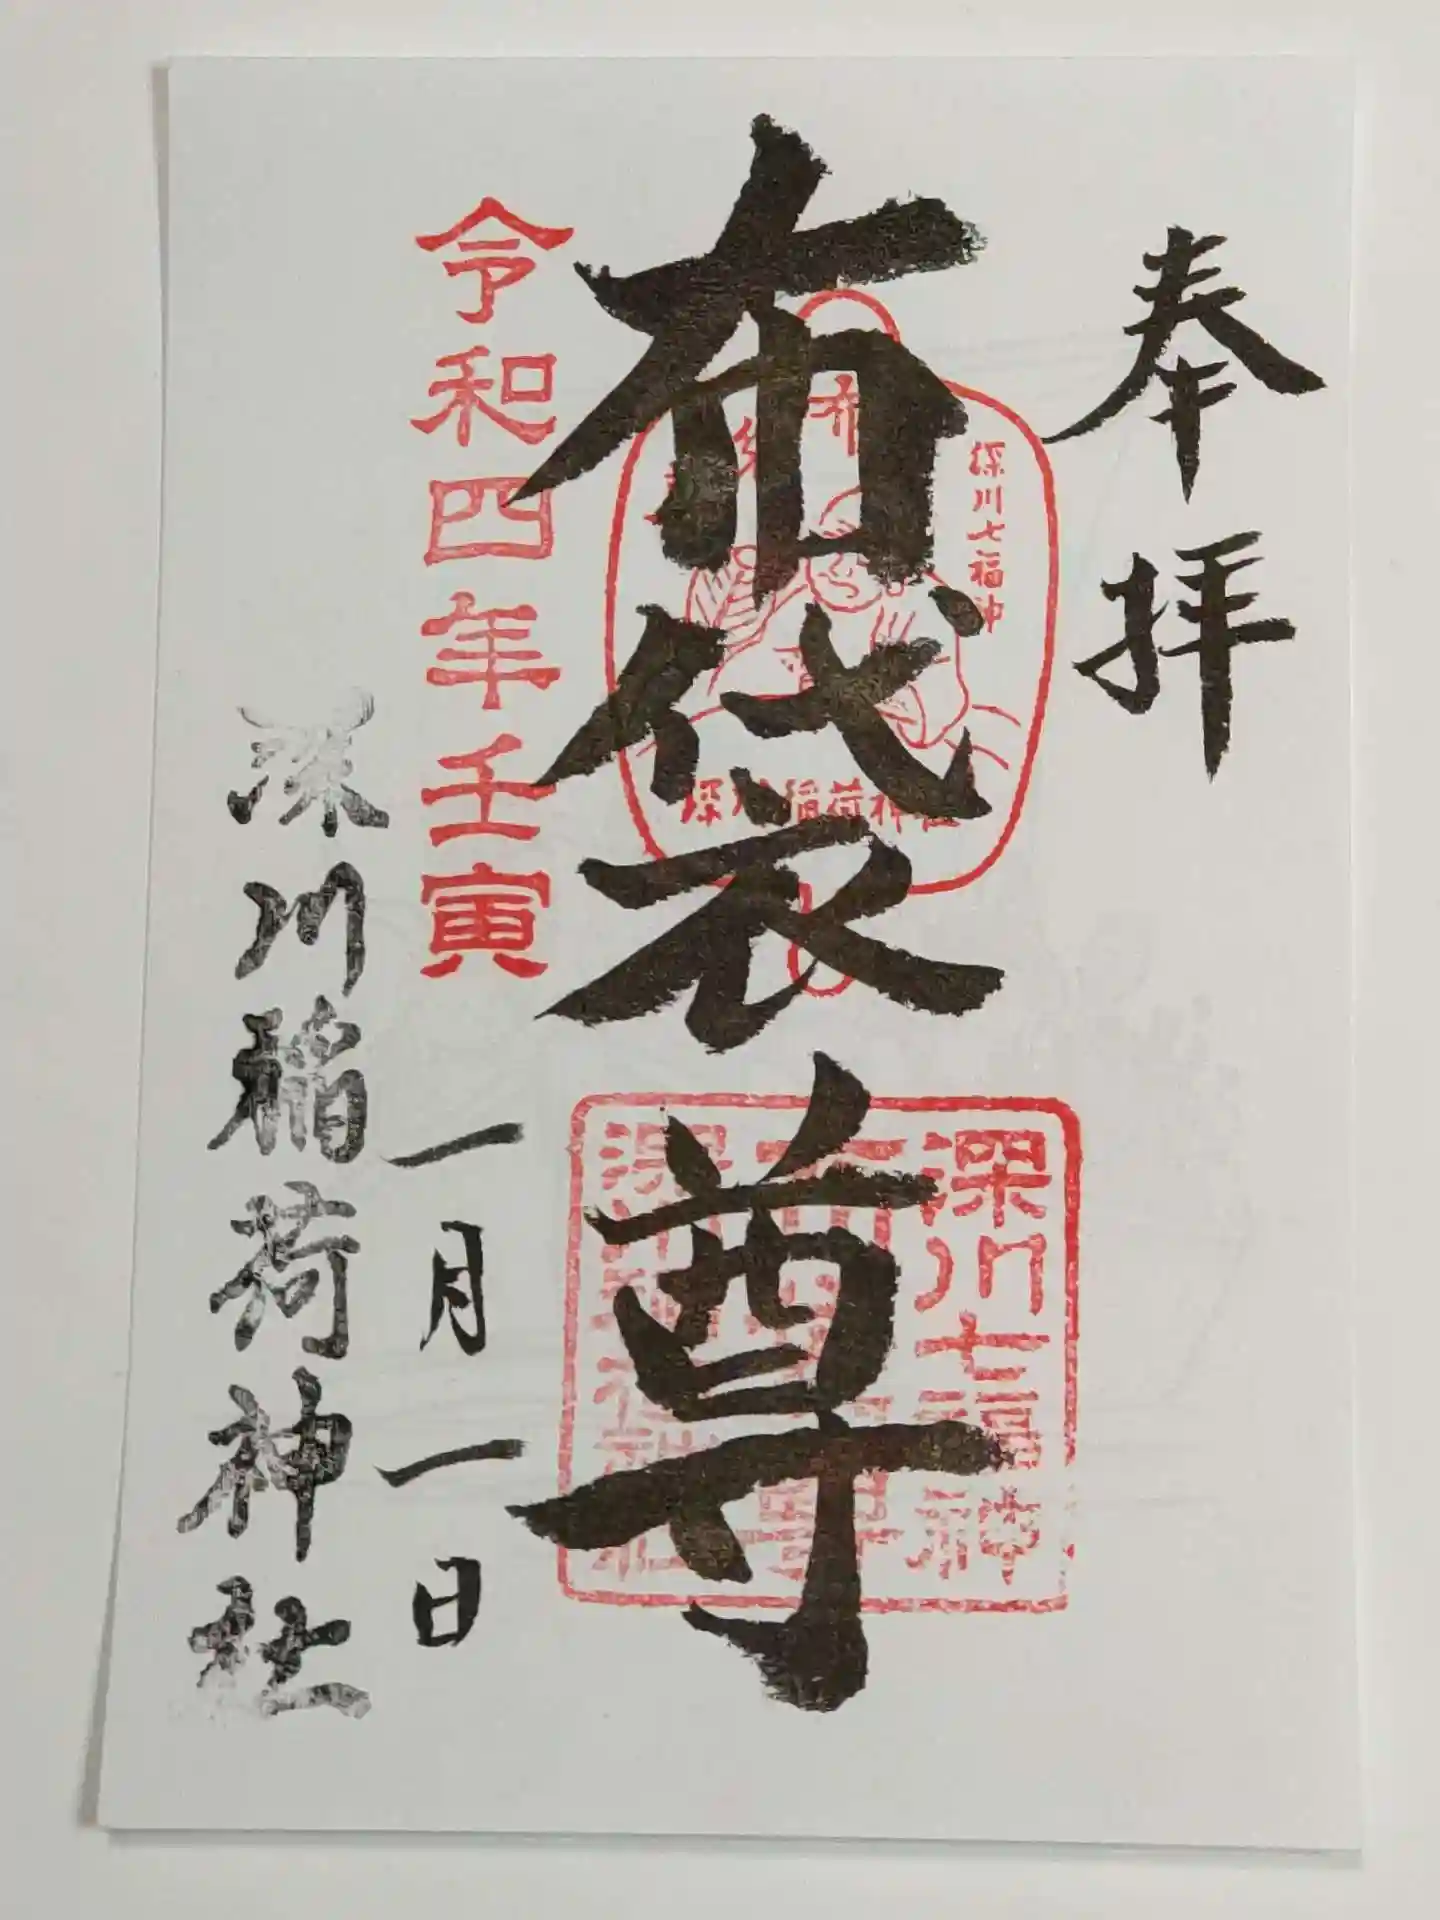 奉拝
布袋尊
深川七福神
布
深川稲荷神社
深川七福神
令和四年壬寅
一月一日
深川稲荷神社